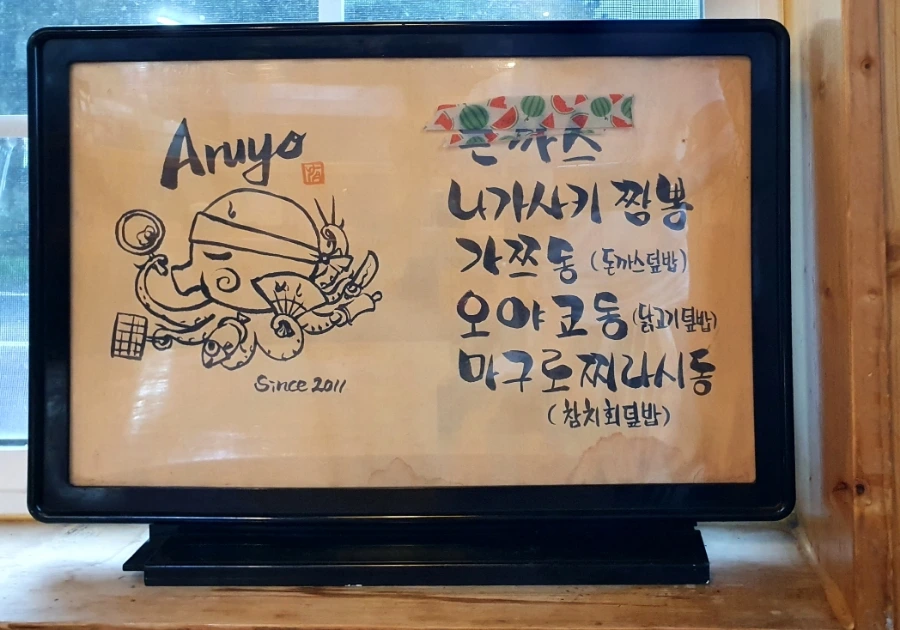 Aruyo
Since 2011
돈까스
나가사키 짬뽕
가쯔동 (돈까스덮밥)
오야코동 (닭고기덮밥)
마구로찌라시동
(참치회덮밥)